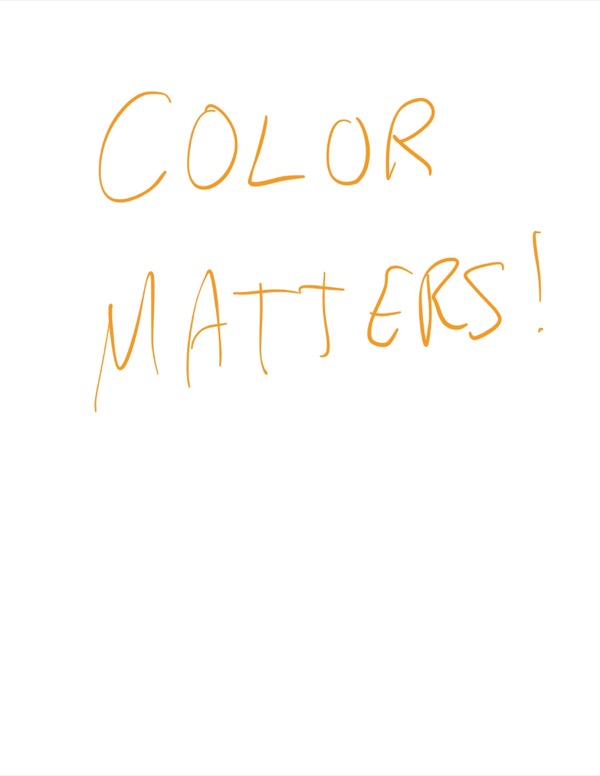 COLOR
MATTERS!